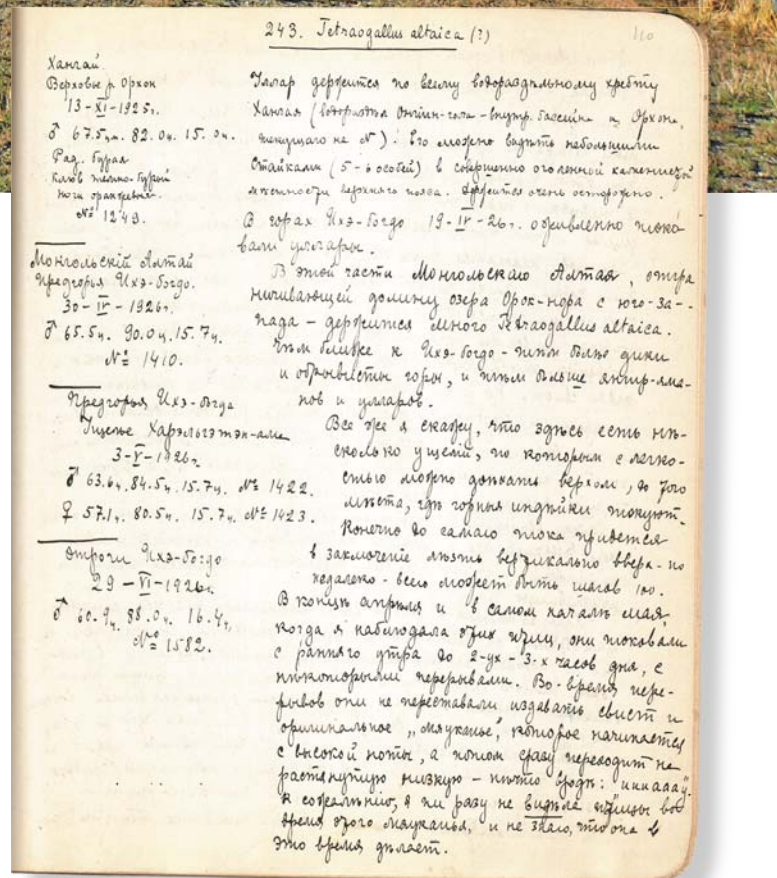 243. Tetraogallus altaica (?)
110
Хангай.
Верховье р. Орхон
13-XI-1925г.
♂ 67.5ч. 82.0ч. 15.0ч.
Рад. бурая
Клюв темно-бурый
ноги оранжевыя.
№ 1249.
Монгольскій Алтай
Предгорья Ихэ-Богдо.
30-IV-1926г.
♂ 65.5ч. 90.0ч. 15.7ч.
№ 1410.
Предгорья Ихэ-богдо
Ущелье Харэльгэтэн-ама
3-V-1926г.
♂ 63.6ч. 84.5ч. 15.7ч. № 1422.
♀ 57.1ч. 80.5ч. 15.7ч. № 1423.
Отроги Ихэ-Богдо
29-VI-1926г.
♂ 60.9ч. 88.0ч. 16.4ч.
№ 1582.
Уллар держится по всему водораздѣльному хребту
Хангая (водораздѣл Онгіин-гола - внутр. бассейна и Орхона,
текущаго на N). Его можно видѣть небольшими
стайками (5-6 особей) в совершенно оголенной каменистой
мѣстности верхняго пояса. Держится очень осторожно.
В горах Ихэ-Богдо 19-IV-26г. оживленно токо-
вали уллары.
В этой части Монгольскаго Алтая, отгра
ничивающей долину озера Орок-нора с юго-за-
пада - держится много Tetraogallus altaica.
Чѣм ближе к Ихэ-Богдо - тѣм болѣе дики
и обрывисты горы, и тѣм больше янгир-яма-
нов и улларов.
Все же я скажу, что здѣсь есть нѣ-
сколько ущелій, по которым с легко-
стью можно доѣхать верхом, до того
мѣста, гдѣ горныя индѣйки токуют.
Конечно до самаго тока придется
в заключеніе лѣзть вертикально вверх - но
недалеко - всего может быть шагов 100.
В концѣ апрѣля и в самом началѣ мая,
когда я наблюдала этих птиц, они токовали
с ранняго утра до 2-ух - 3-х часов дня, с
нѣкоторыми перерывами. Во-время пере-
рывов они не переставали издавать свист и
оригинальное „мяуканье“, которое начинается
с высокой ноты, а потом сразу переходит на
растянутую низкую - нѣчто вродѣ: ииіаааў.
К сожалѣнію, я ни разу не видѣла птицы во
время этого мяуканья, и не знаю, что она в
это время дѣлает.